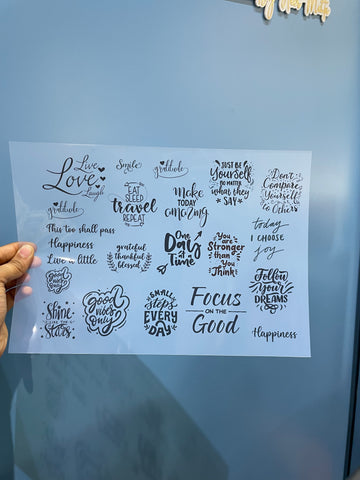 Live
Love
Laugh
Smile
gratitude
JUST BE
Yourself
NO MATTER
what they
SAY
Don't
Compare
Yourself
to Others
gratitude
EAT
SLEEP
travel
REPEAT
Make
TODAY
amazing
This too shall pass
Happiness
Live a little
grateful
thankful
blessed
One
Day
at a
Time
You are
Stronger
than
You
Think!
today
I CHOOSE
joy
good
vibes
only
Follow
Your
DREAMS
Shine
LIKE THE
Stars
good
vibes
only
SMALL
Steps
EVERY
DAY
Focus
ON THE
Good
Happiness